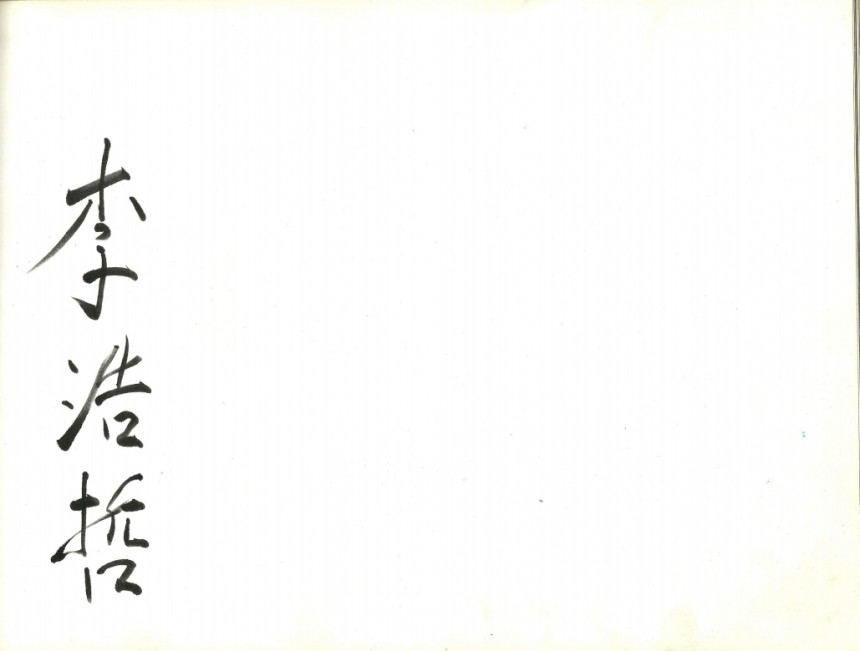 李浩哲